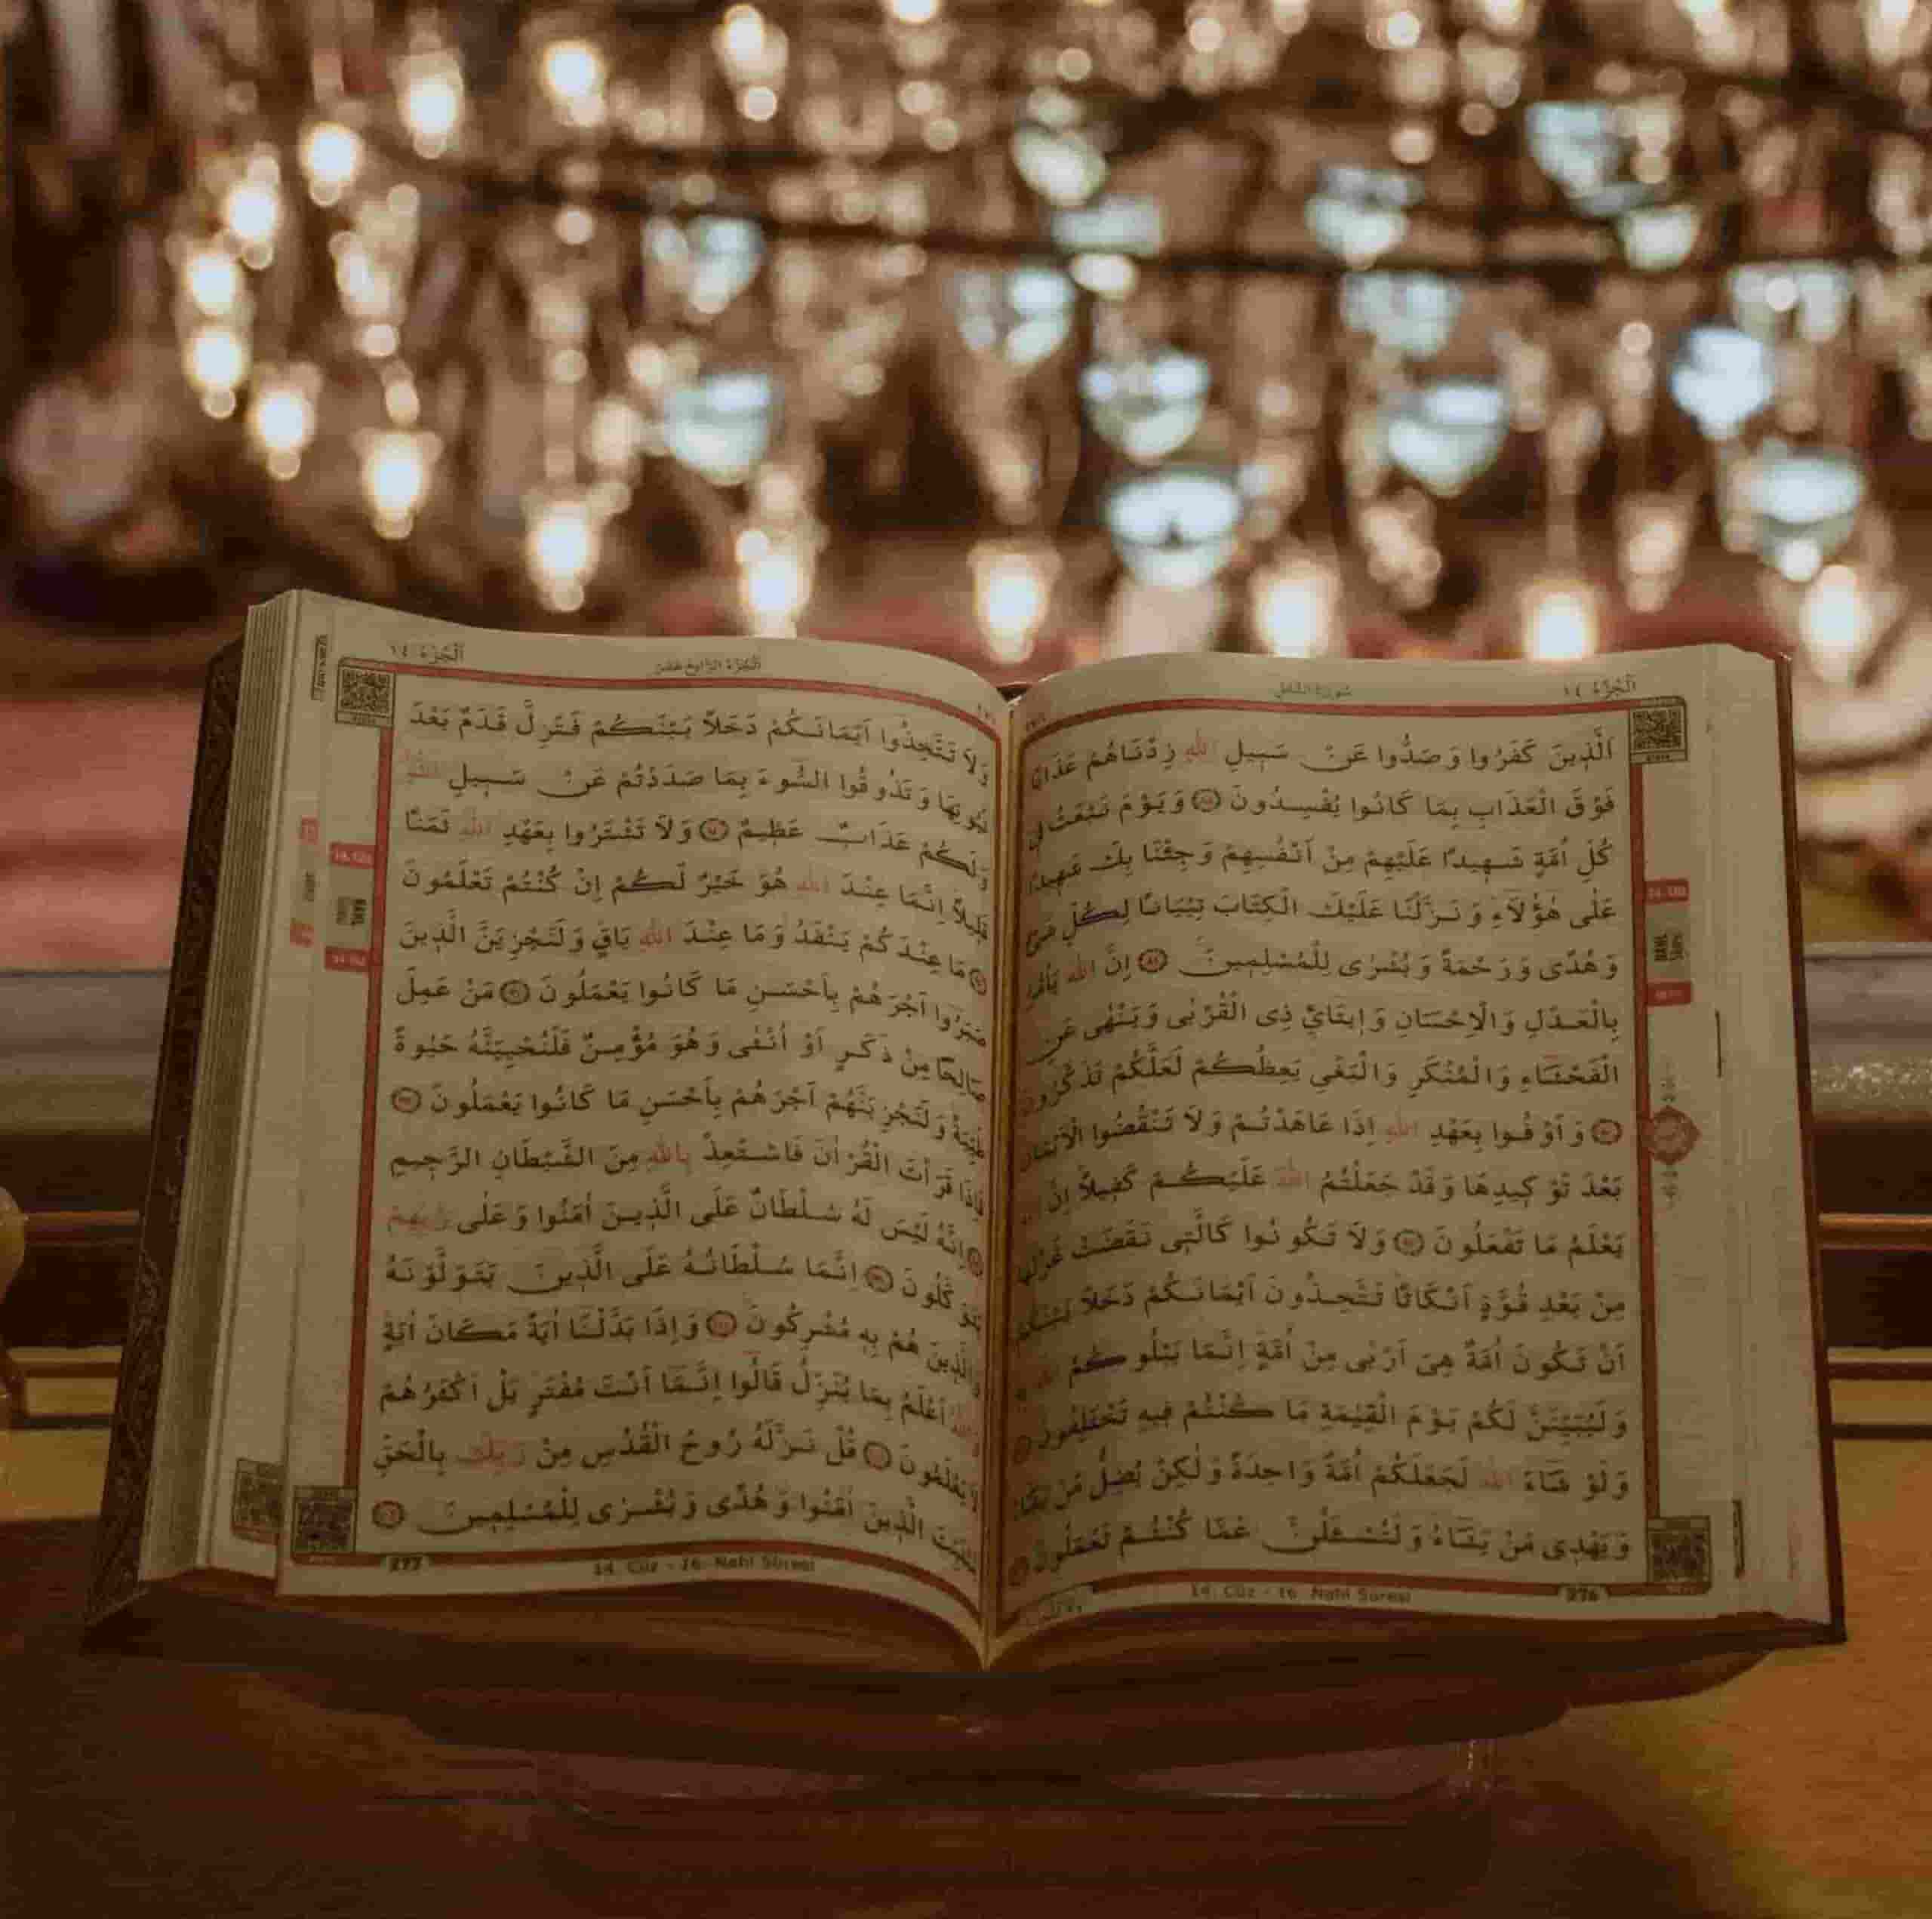 اَلْجُزْءُ ١٤
سُورَةُ النَّحْلِ
اَلَّذِينَ كَفَرُوا وَصَدُّوا عَنْ سَبِيلِ اللّٰهِ زِدْنَاهُمْ عَذَابًا
فَوْقَ الْعَذَابِ بِمَا كَانُوا يُفْسِدُونَ ﴿٨٨﴾ وَيَوْمَ نَبْعَثُ فِى
كُلِّ اُمَّةٍ شَهِيدًا عَلَيْهِمْ مِنْ اَنْفُسِهِمْ وَجِئْنَا بِكَ شَهِيدًا
عَلٰى هٰٓؤُ۬لَٓاءِ وَنَزَّلْنَا عَلَيْكَ الْكِتَابَ تِبْيَانًا لِكُلِّ شَىْءٍ
وَهُدًى وَرَحْمَةً وَبُشْرٰى لِلْمُسْلِمِينَ ﴿٨٩﴾ اِنَّ اللّٰهَ يَأْمُرُ
بِالْعَدْلِ وَالْاِحْسَانِ وَاِيتَٓائِ ذِى الْقُرْبٰى وَيَنْهٰى عَنِ
الْفَحْشَٓاءِ وَالْمُنْكَرِ وَالْبَغْىِ يَعِظُكُمْ لَعَلَّكُمْ تَذَكَّرُونَ
﴿٩٠﴾ وَاَوْفُوا بِعَهْدِ اللّٰهِ اِذَا عَاهَدْتُمْ وَلَا تَنْقُضُوا الْاَيْمَانَ
بَعْدَ تَوْكِيدِهَا وَقَدْ جَعَلْتُمُ اللّٰهَ عَلَيْكُمْ كَفِيلًا اِنَّ
يَعْلَمُ مَا تَفْعَلُونَ ﴿٩١﴾ وَلَا تَكُونُوا كَالَّتِى نَقَضَتْ غَزْلَهَا
مِنْ بَعْدِ قُوَّةٍ اَنْكَاثًا تَتَّخِذُونَ اَيْمَانَكُمْ دَخَلًا بَيْنَكُمْ
اَنْ تَكُونَ اُمَّةٌ هِىَ اَرْبٰى مِنْ اُمَّةٍ اِنَّمَا يَبْلُوكُمُ اللّٰهُ بِهِ
وَلَيُبَيِّنَنَّ لَكُمْ يَوْمَ الْقِيٰمَةِ مَا كُنْتُمْ فِيهِ تَخْتَلِفُونَ ﴿٩٢﴾
وَلَوْ شَٓاءَ اللّٰهُ لَجَعَلَكُمْ اُمَّةً وَاحِدَةً وَلٰكِنْ يُضِلُّ مَنْ يَشَٓاءُ
وَيَهْدِى مَنْ يَشَٓاءُ وَلَتُسْـَٔلُنَّ عَمَّا كُنْتُمْ تَعْمَلُونَ ﴿٩٣﴾
14. Cüz - 16. Nahl Suresi
276
اَلْجُزْءُ ١٤
اَلْجُزْءُ الرَّابِعَ عَشَرَ
وَلَا تَتَّخِذُٓوا اَيْمَانَكُمْ دَخَلًا بَيْنَكُمْ فَتَزِلَّ قَدَمٌ بَعْدَ
ثُبُوتِهَا وَتَذُوقُوا السُّٓوءَ بِمَا صَدَدْتُمْ عَنْ سَبِيلِ اللّٰهِ
وَلَكُمْ عَذَابٌ عَظِيمٌ ﴿٩٤﴾ وَلَا تَشْتَرُوا بِعَهْدِ اللّٰهِ ثَمَنًا
قَلِيلًا اِنَّمَا عِنْدَ اللّٰهِ هُوَ خَيْرٌ لَكُمْ اِنْ كُنْتُمْ تَعْلَمُونَ
﴿٩٥﴾ مَا عِنْدَكُمْ يَنْفَدُ وَمَا عِنْدَ اللّٰهِ بَاقٍ وَلَنَجْزِيَنَّ الَّذِينَ
صَبَرُٓوا اَجْرَهُمْ بِاَحْسَنِ مَا كَانُوا يَعْمَلُونَ ﴿٩٦﴾ مَنْ عَمِلَ
صَالِحًا مِنْ ذَكَرٍ اَوْ اُنْثٰى وَهُوَ مُؤْمِنٌ فَلَنُحْيِيَنَّهُ حَيٰوةً
طَيِّبَةً وَلَنَجْزِيَنَّهُمْ اَجْرَهُمْ بِاَحْسَنِ مَا كَانُوا يَعْمَلُونَ ﴿٩٧﴾
فَاِذَا قَرَأْتَ الْقُرْاٰنَ فَاسْتَعِذْ بِاللّٰهِ مِنَ الشَّيْطَانِ الرَّجِيمِ
﴿٩٨﴾ اِنَّهُ لَيْسَ لَهُ سُلْطَانٌ عَلَى الَّذِينَ اٰمَنُوا وَعَلٰى رَبِّهِمْ
يَتَوَكَّلُونَ ﴿٩٩﴾ اِنَّمَا سُلْطَانُهُ عَلَى الَّذِينَ يَتَوَلَّوْنَهُ
وَالَّذِينَ هُمْ بِهِ مُشْرِكُونَ ﴿١٠٠﴾ وَاِذَا بَدَّلْنَٓا اٰيَةً مَكَانَ اٰيَةٍ
وَاللّٰهُ اَعْلَمُ بِمَا يُنَزِّلُ قَالُٓوا اِنَّمَٓا اَنْتَ مُفْتَرٍ بَلْ اَكْثَرُهُمْ
لَا يَعْلَمُونَ ﴿١٠١﴾ قُلْ نَزَّلَهُ رُوحُ الْقُدُسِ مِنْ رَبِّكَ بِالْحَقِّ
لِيُثَبِّتَ الَّذِينَ اٰمَنُوا وَهُدًى وَبُشْرٰى لِلْمُسْلِمِينَ ﴿١٠٢﴾
277
14. Cüz - 16. Nahl Suresi